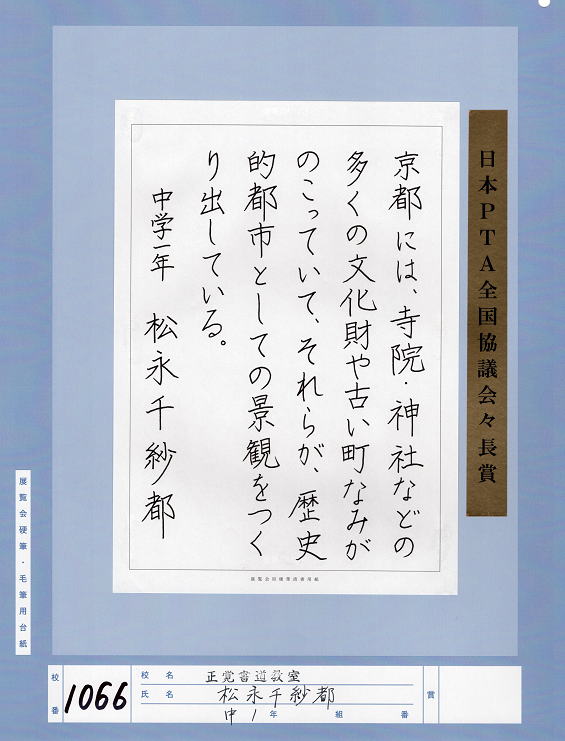 日本PTA全国協議会々長賞
京都には、寺院・神社などの
多くの文化財や古い町なみが
のこっていて、それらが、歴史
的都市としての景観をつく
り出している。
中学一年 松永千紗都
展覧会用硬筆清書用紙
展覧会硬筆・毛筆用台紙
校番 1066
校名 正覚書道教室
氏名 松永千紗都
中1年 組 番
賞